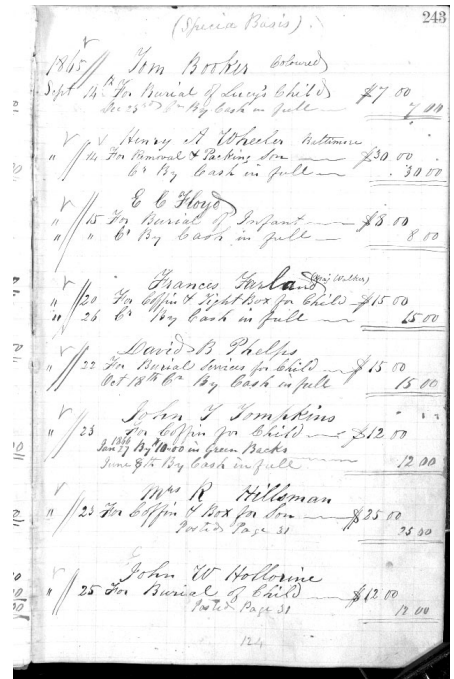 243
(Specie Basis).
1865 Tom Booker Coloured
Sept 14th For Burial of Lucy's Child $7 00
Dec 23rd By Cash in full 7 00
Henry A Wheeler Baltimore
" 14 For Removal & Packing Son $30 00
Cr By Cash in full 30 00
E C Floyd
" 15 For Burial of Infant $8 00
" " Cr By Cash in full 8 00
Frances Farland (Walker)
" 20 For Coffin & Tight Box for Child $15 00
" 26 Cr By Cash in full 15 00
David B Phelps
" 22 For Burial Services for Child $15 00
Oct 18th Cr By Cash in full 15 00
John T Tompkins
" 23 For Coffin for Child $12 00
1866
Jan 27 By $10.00 in Green Backs
June 8th By Cash in full 12 00
Mrs R Hillsman
" 23 For Coffin & Box for Son $25 00
Posted Page 31 25 00
John W Hollorine
" 25 For Burial of Child $12 00
Posted Page 31 12 00
124